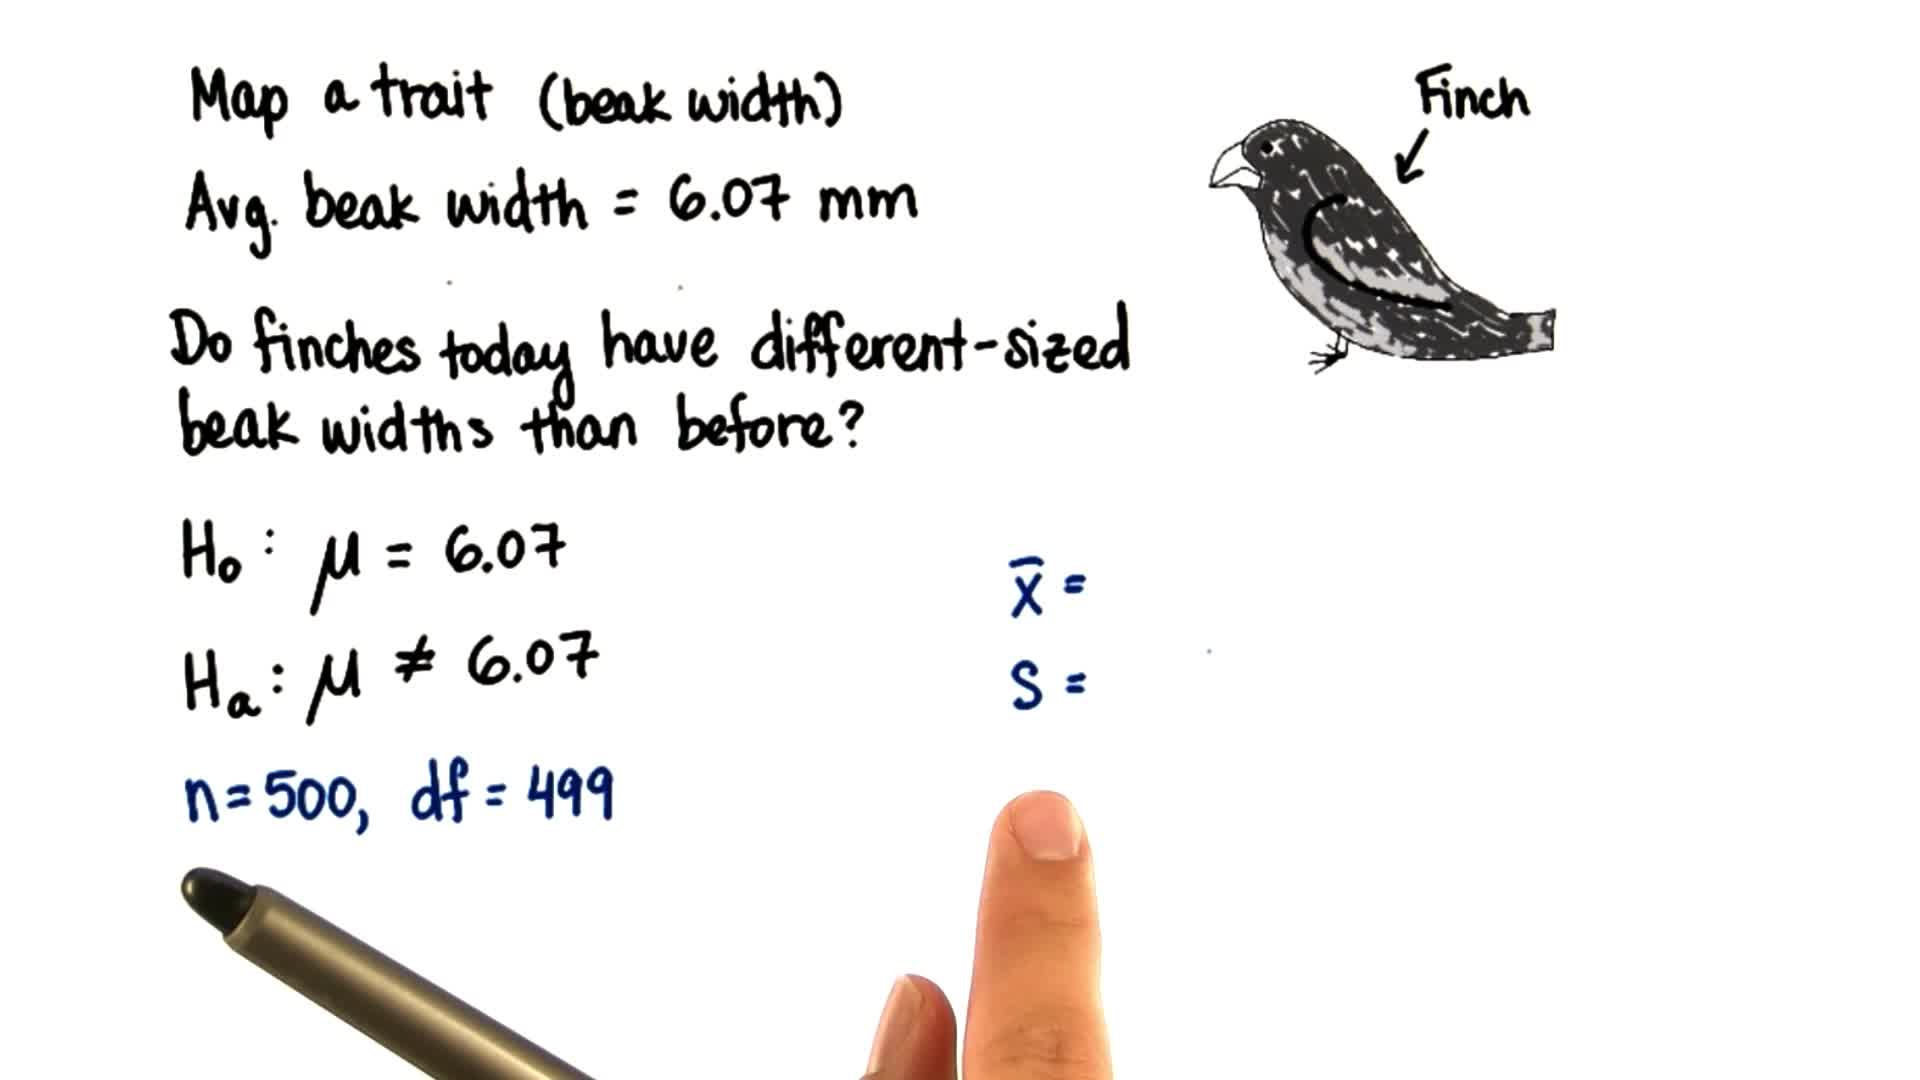 Map a trait (beak width)
Finch
Avg. beak width = 6.07 mm
Do finches today have different-sized
beak widths than before?
H₀: μ = 6.07
Hₐ: μ ≠ 6.07
n=500, df = 499
x̄ =
S =